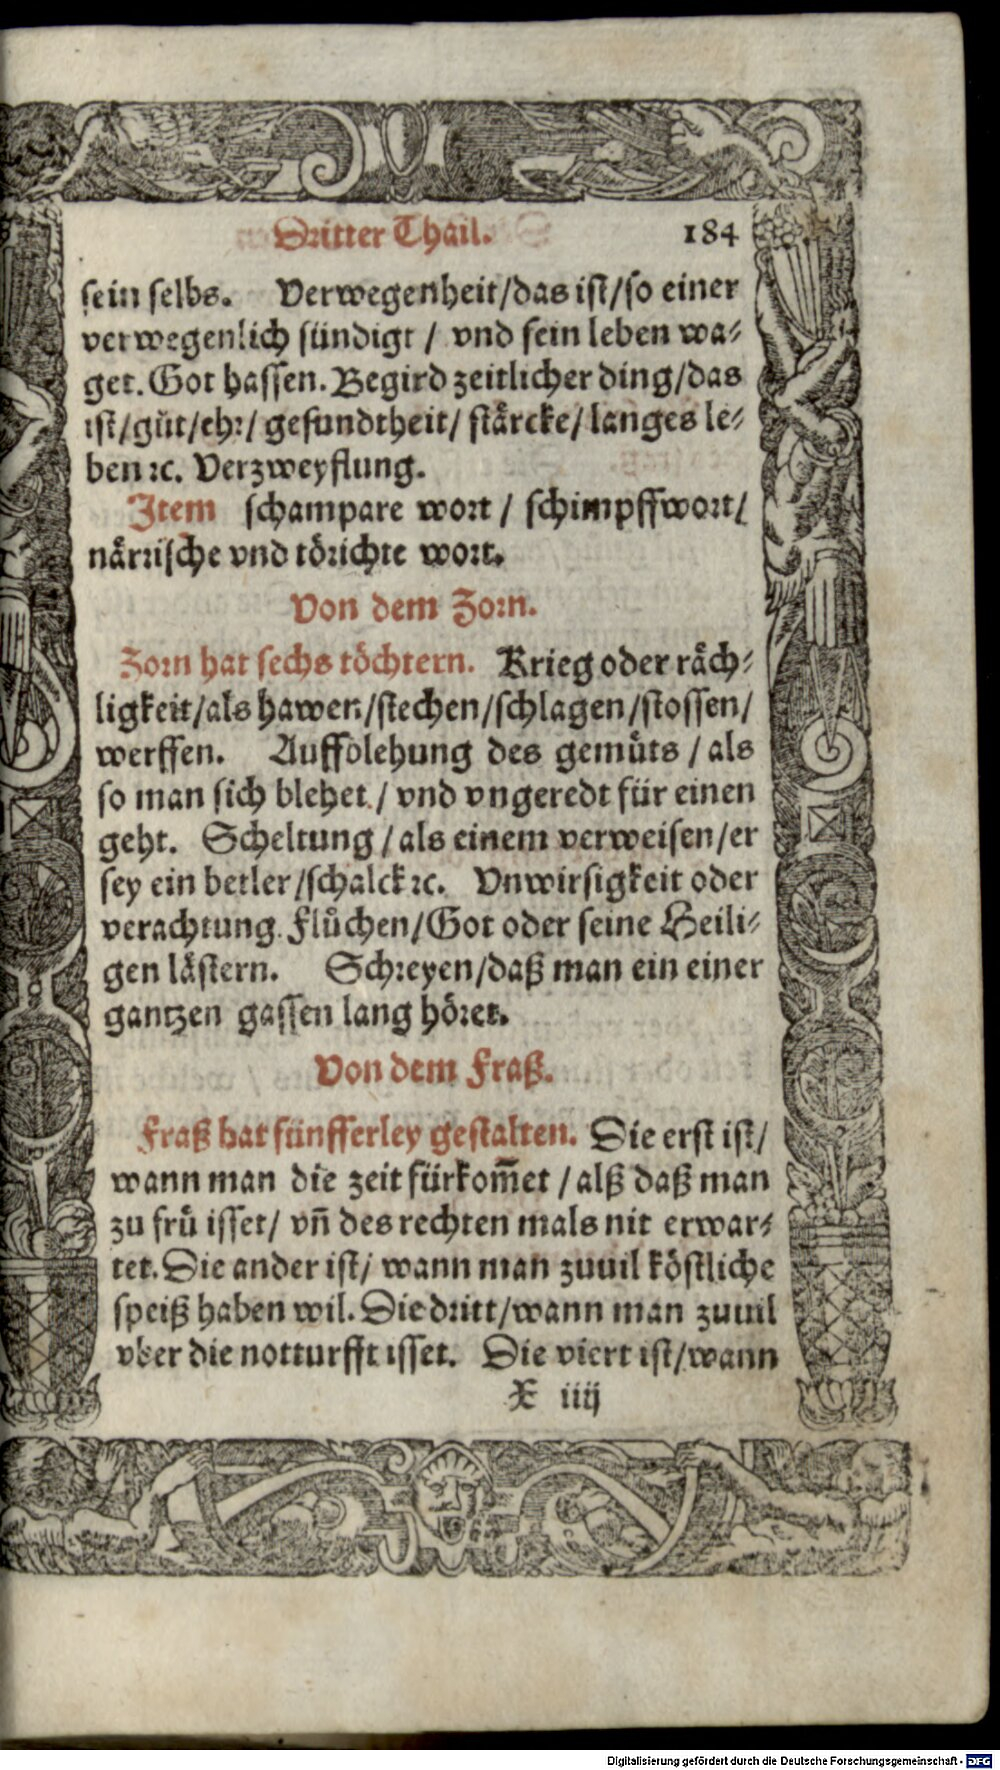 Dritter Thail. 184
sein selbs. Verwegenheit/das ist/so einer
verwegenlich sündigt / vnd sein leben wa⸗
get. Got hassen. Begird zeitlicher ding/das
ist/gůt/ehr/ gesundtheit/ stärcke/ langes le⸗
ben ꝛc. Verzweyflung.
Item schampare wort / schimpffwort/
närrische vnd törichte wort.
Von dem Zorn.
Zorn hat sechs töchtern. Krieg oder räch⸗
ligkeit/als hawen/stechen/schlagen/stossen/
werffen. Auffblehung des gemüts / als
so man sich blehet / vnd vngeredt für einen
geht. Scheltung / als einem verweisen/er
sey ein betler /schalck ꝛc. Vnwirsigkeit oder
verachtung. Flůchen/Got oder seine Heili⸗
gen lästern. Schreyen/daß man ein einer
gantzen gassen lang höret.
Von dem Fraß.
Fraß hat fünfferley gestalten. Die erst ist/
wann man die zeit fürkom̃et / alß daß man
zu frů isset/ vñ des rechten mals nit erwar⸗
tet. Die ander ist/ wann man zuuil köstliche
speiß haben wil. Die dritt/wann man zuuil
vber die notturfft isset. Die viert ist/wann
X iiij
Digitalisierung gefördert durch die Deutsche Forschungsgemeinschaft - DFG